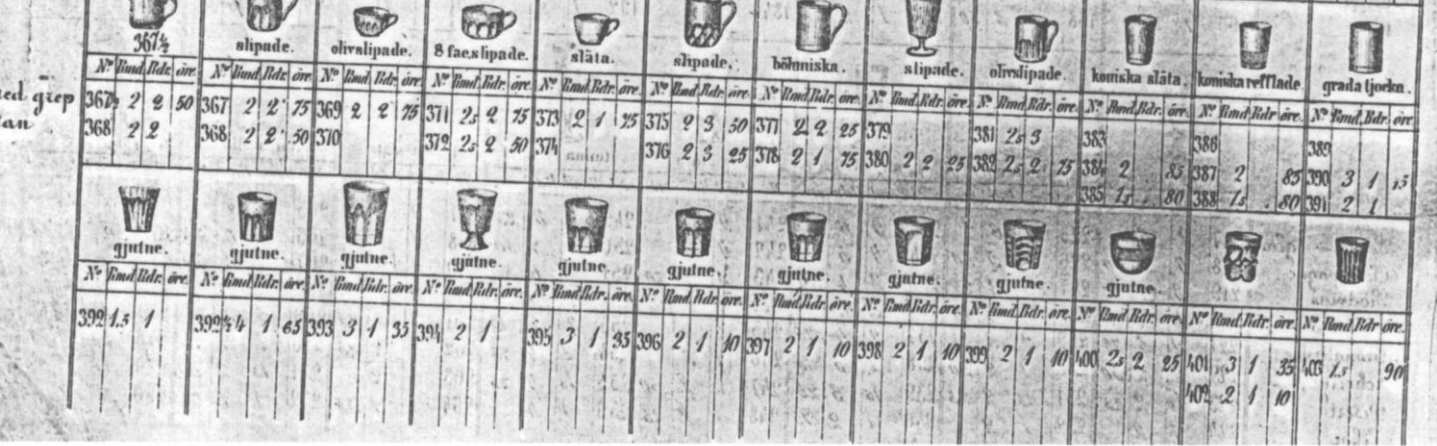 367½ slipade. olivslipade. 8 fac.slipade. släta. slipade. böhmiska. slipade. olivslipade. koniska släta. koniska refflade grada tjocka.
No Rmd Rdr. öre No Rmd Rdr. öre. No Rmd Rdr. öre. No Rmd Rdr. öre. No Rmd Rdr. öre. No Rmd Rdr. öre No Rmd Rdr. öre. No Rmd Rdr. öre. No Rmd Rdr. öre. No Rmd Rdr. öre. No Rmd Rdr öre No Rmd. Rdr. öre.
grep 367½ 2 2 50 367 2 2 75 369 2 2 75 371 2s 2 75 373 2 1 75 375 2 3 50 377 2 2 25 379 381 2s 3 383 386 389
368 2 2 368 2 2 50 370 372 2s 2 50 374 376 2 3 25 378 2 1 75 380 2 2 25 382 2s 2 75 384 2 85 387 2 85 390 3 1
385 1s . 80 388 1s . 80 391 2 1
gjutne. gjutne. gjutne. gjutne. gjutne. gjutne. gjutne. gjutne. gjutne. gjutne.
No Rmd Rdr. öre. No Rmd Rdr. öre. No Rmd Rdr. öre. No Rmd Rdr. öre. No Rmd Rdr. öre. No Rmd Rdr. öre. No Rmd Rdr. öre. No Rmd Rdr. öre. No Rmd Rdr. öre. No Rmd Rdr. öre. No Rmd Rdr. öre. No Rmd Rdr öre.
392 1.s 1 392½ 4 1 65 393 3 1 35 394 2 1 395 3 1 35 396 2 1 10 397 2 1 10 398 2 1 10 399 2 1 10 400 2s 2 25 401 3 1 35 403 1.s 90
402 2 1 10